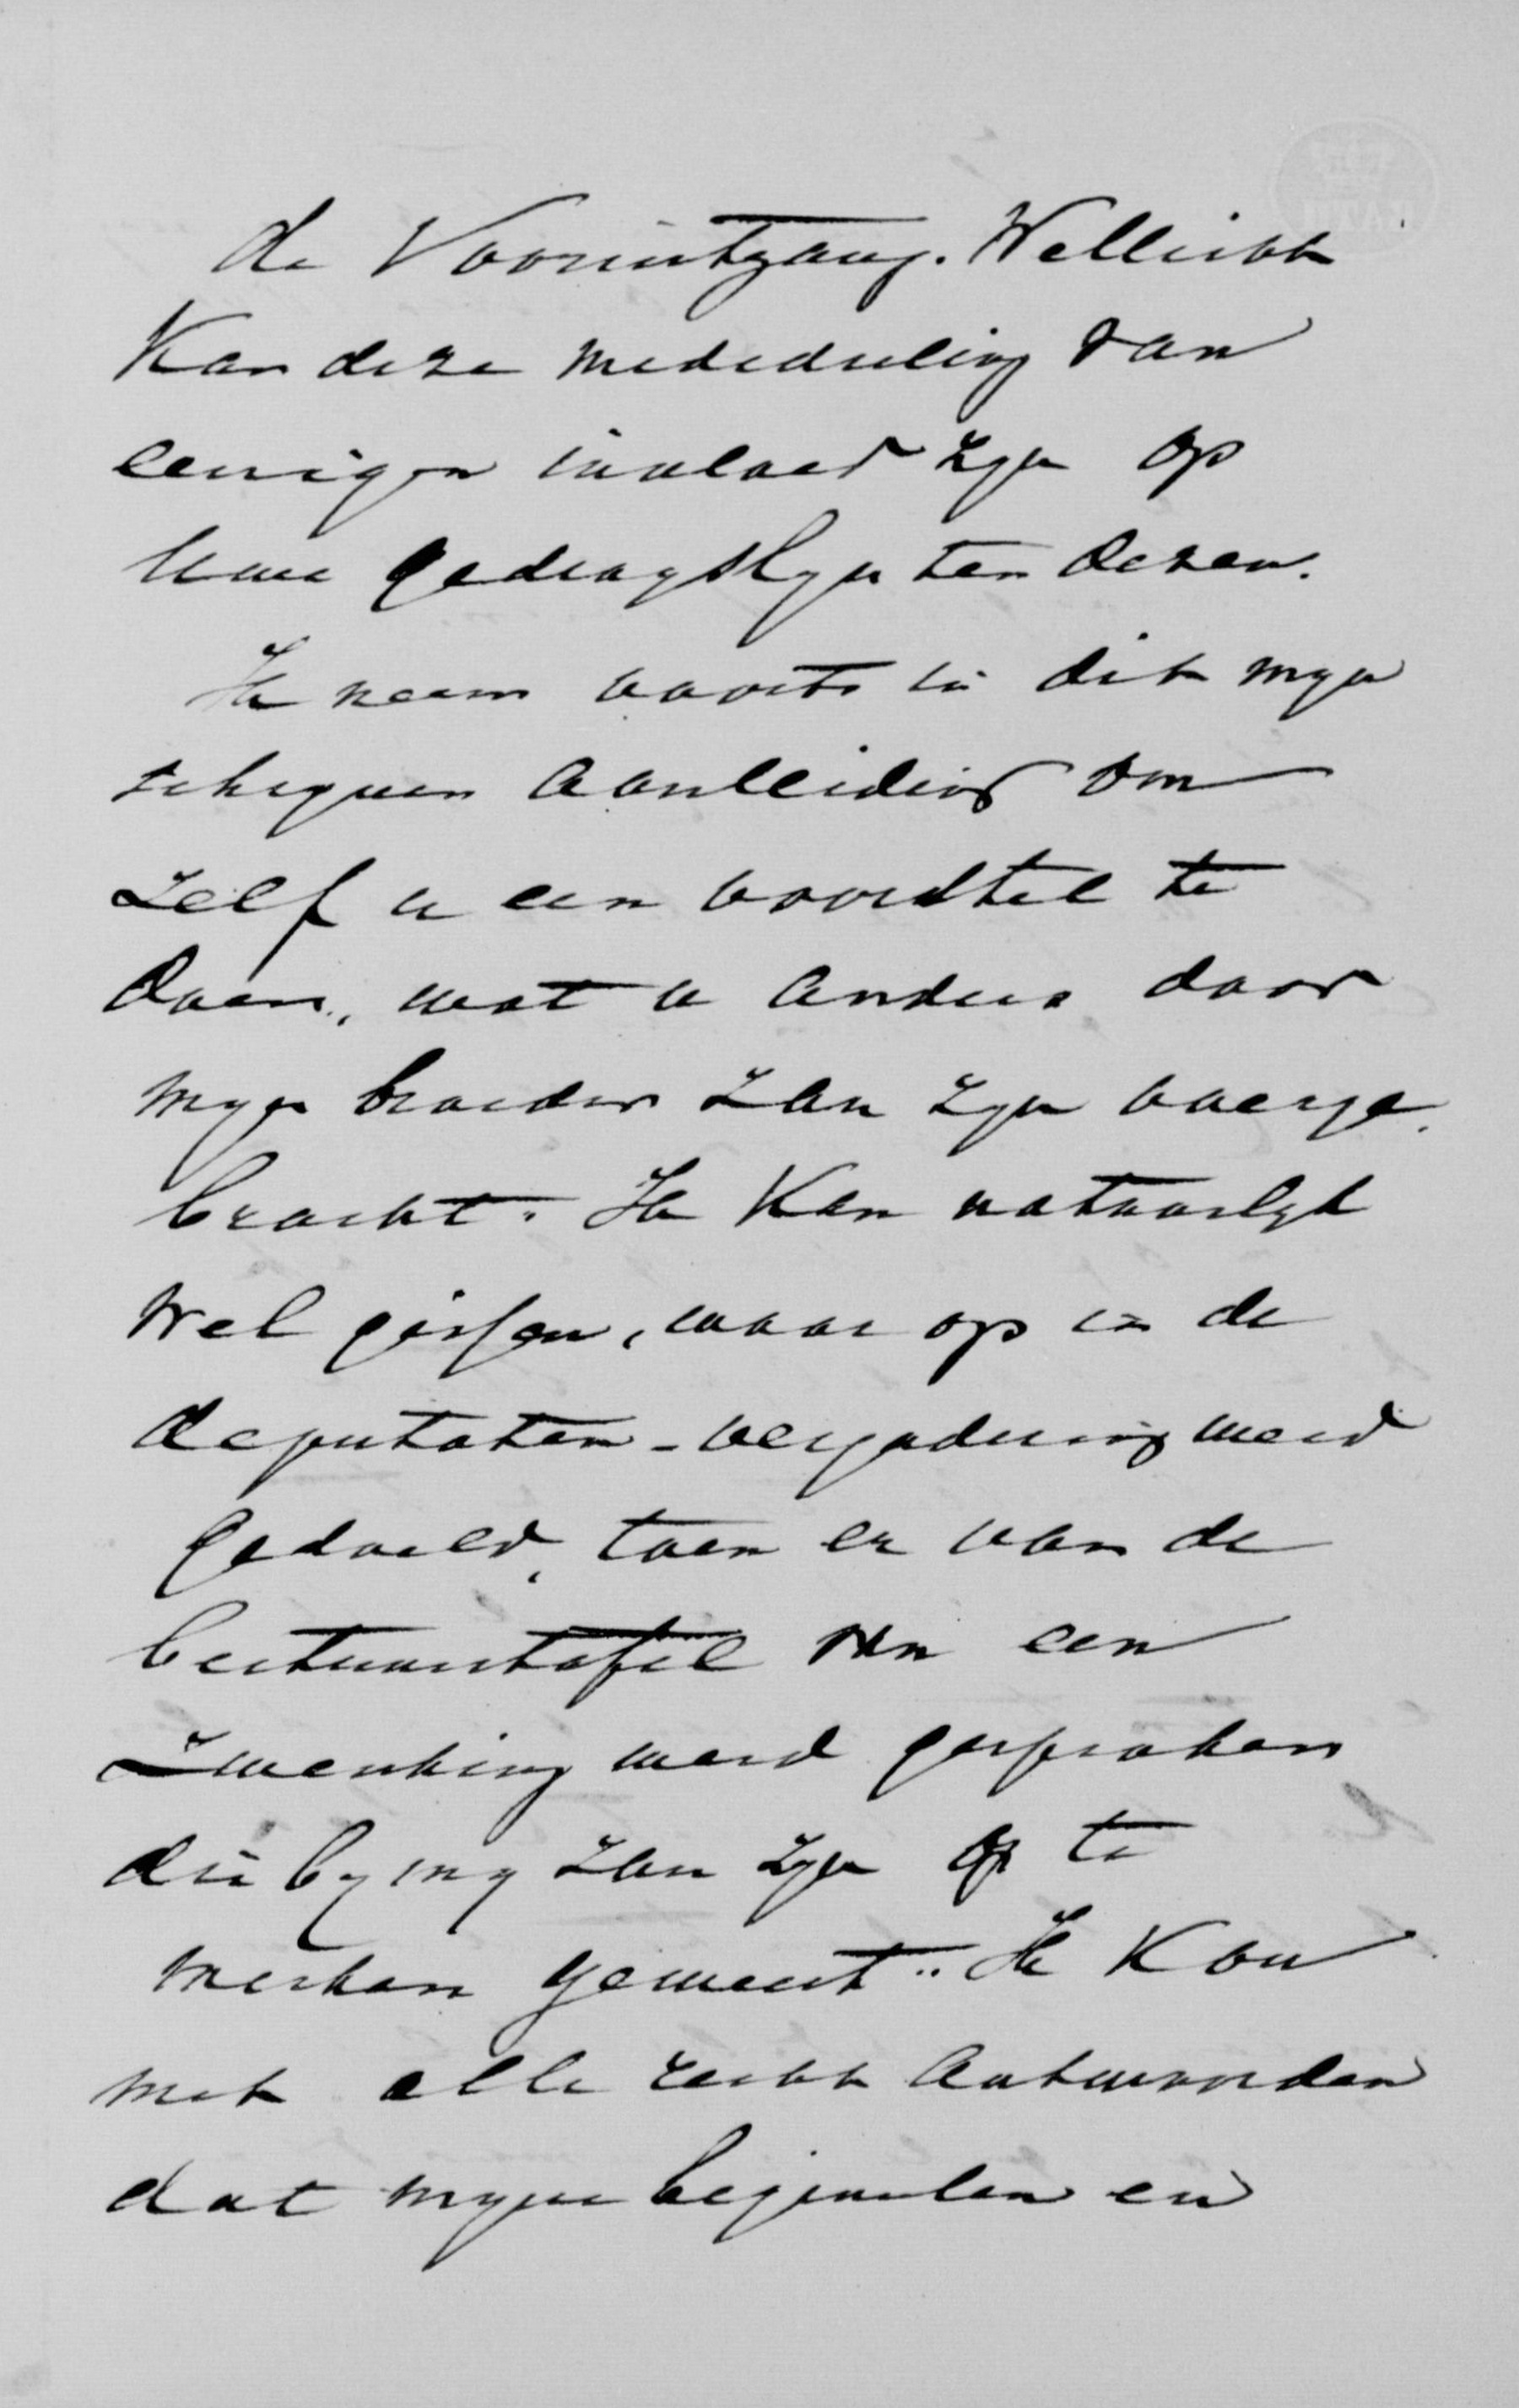 de Vooruitgang. Wellicht
Kan deze mededeeling van
eenigen invloed zyn op
Uwe gedragslyn ten dezen.
Ik neem voorts in dit myn
schryven aanleiding om
zelf u een voorstel te
doen, wat u anders door
myn broeder zou zyn overge-
bracht. Ik Kan natuurlyk
wel gissen, waar op in de
deputaten-vergadering werd
gedoeld, toen er van de
bestuurstafel van een
zwenking werd gesproken
die by my zou zyn op te
merken geweest. Ik Kon
met alle recht antwoorden
dat myne beginselen en